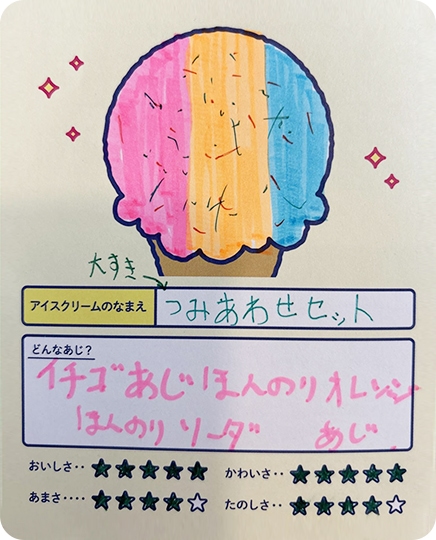 大すき
アイスクリームのなまえ つみあわせセット
どんなあじ?
イチゴあじほんのりオレンジ
ほんのりソーダ あじ
おいしさ‥ ★★★★★ かわいさ‥ ★★★★★
あまさ‥‥ ★★★★☆ たのしさ‥ ★★★★☆